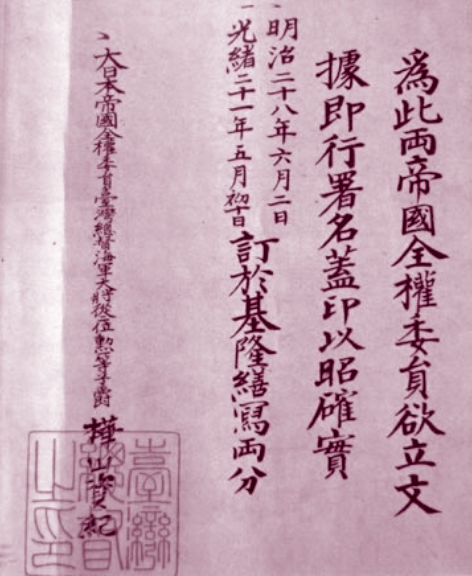 為此兩帝國全權委員欲立文
據即行署名蓋印以昭確實
明治二十八年六月二日
光緒二十一年五月初十日
訂於基隆繕寫兩分
大日本帝國全權委員臺灣總督海軍大將從二位勳一等子爵 樺山資紀
臺灣總督之印